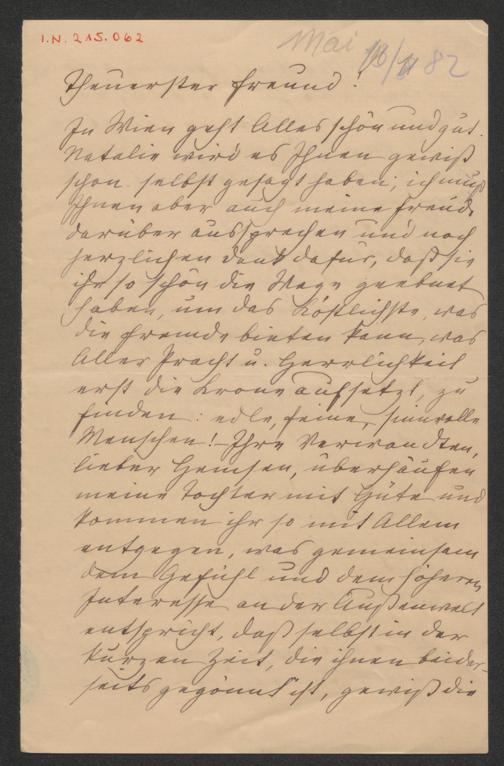 I.N. 215.062
Mai 82
Theuerster Freund!
In Wien geht Alles schön und gut.
Natalie wird es Ihnen gewiß
schon selbst gesagt haben; ich muß
Ihnen aber auch meine Freude
darüber aussprechen und noch
herzlichen Dank dafür, daß sie
ihr so schön die Wege geebnet
haben, um das Köstlichste, was
die Fremde bieten kann, was
Aller Pracht u. Herrlichkeit
erst die Krone aufsetzt, zu
finden: edle, feine, sinnvolle
Menschen! Ihre Verwandten,
lieber Hemsen, überhäufen
meine Tochter mit Güte und
kommen ihr so mit Allem
entgegen, was gemeinsam
dem Gefühl und dem höheren
Interesse an der Außenwelt
entspricht, daß selbst in der
kurzen Zeit, die ihnen beider-
seits gegönnt ist, gewiß die